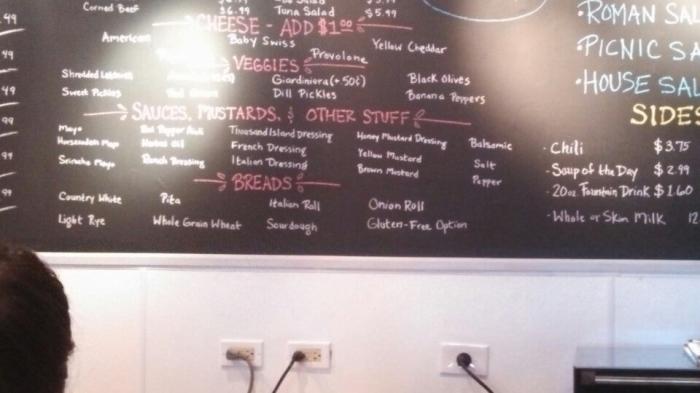 .49
Corned Beef
$6.99
Tuna Salad
$5.99
ROMAN SAL
CHEESE - ADD $1.00
American
Baby Swiss
Provolone
Yellow Cheddar
PICNIC SA
VEGGIES
Shredded Lettuce
Giardiniera (+50¢)
Black Olives
HOUSE SAL
Sweet Pickles
Dill Pickles
Banana Peppers
SIDES
SAUCES, MUSTARDS, & OTHER STUFF
Mayo
Thousand Island Dressing
Honey Mustard Dressing
Balsamic
Horseradish Mayo
French Dressing
Yellow Mustard
Salt
Sriracha Mayo
Ranch Dressing
Italian Dressing
Brown Mustard
Pepper
Chili $3.75
Soup of the Day $2.99
20oz Fountain Drink $1.60
Whole or Skim Milk 12
BREADS
Country White
Pita
Italian Roll
Onion Roll
Light Rye
Whole Grain Wheat
Sourdough
Gluten-Free Option